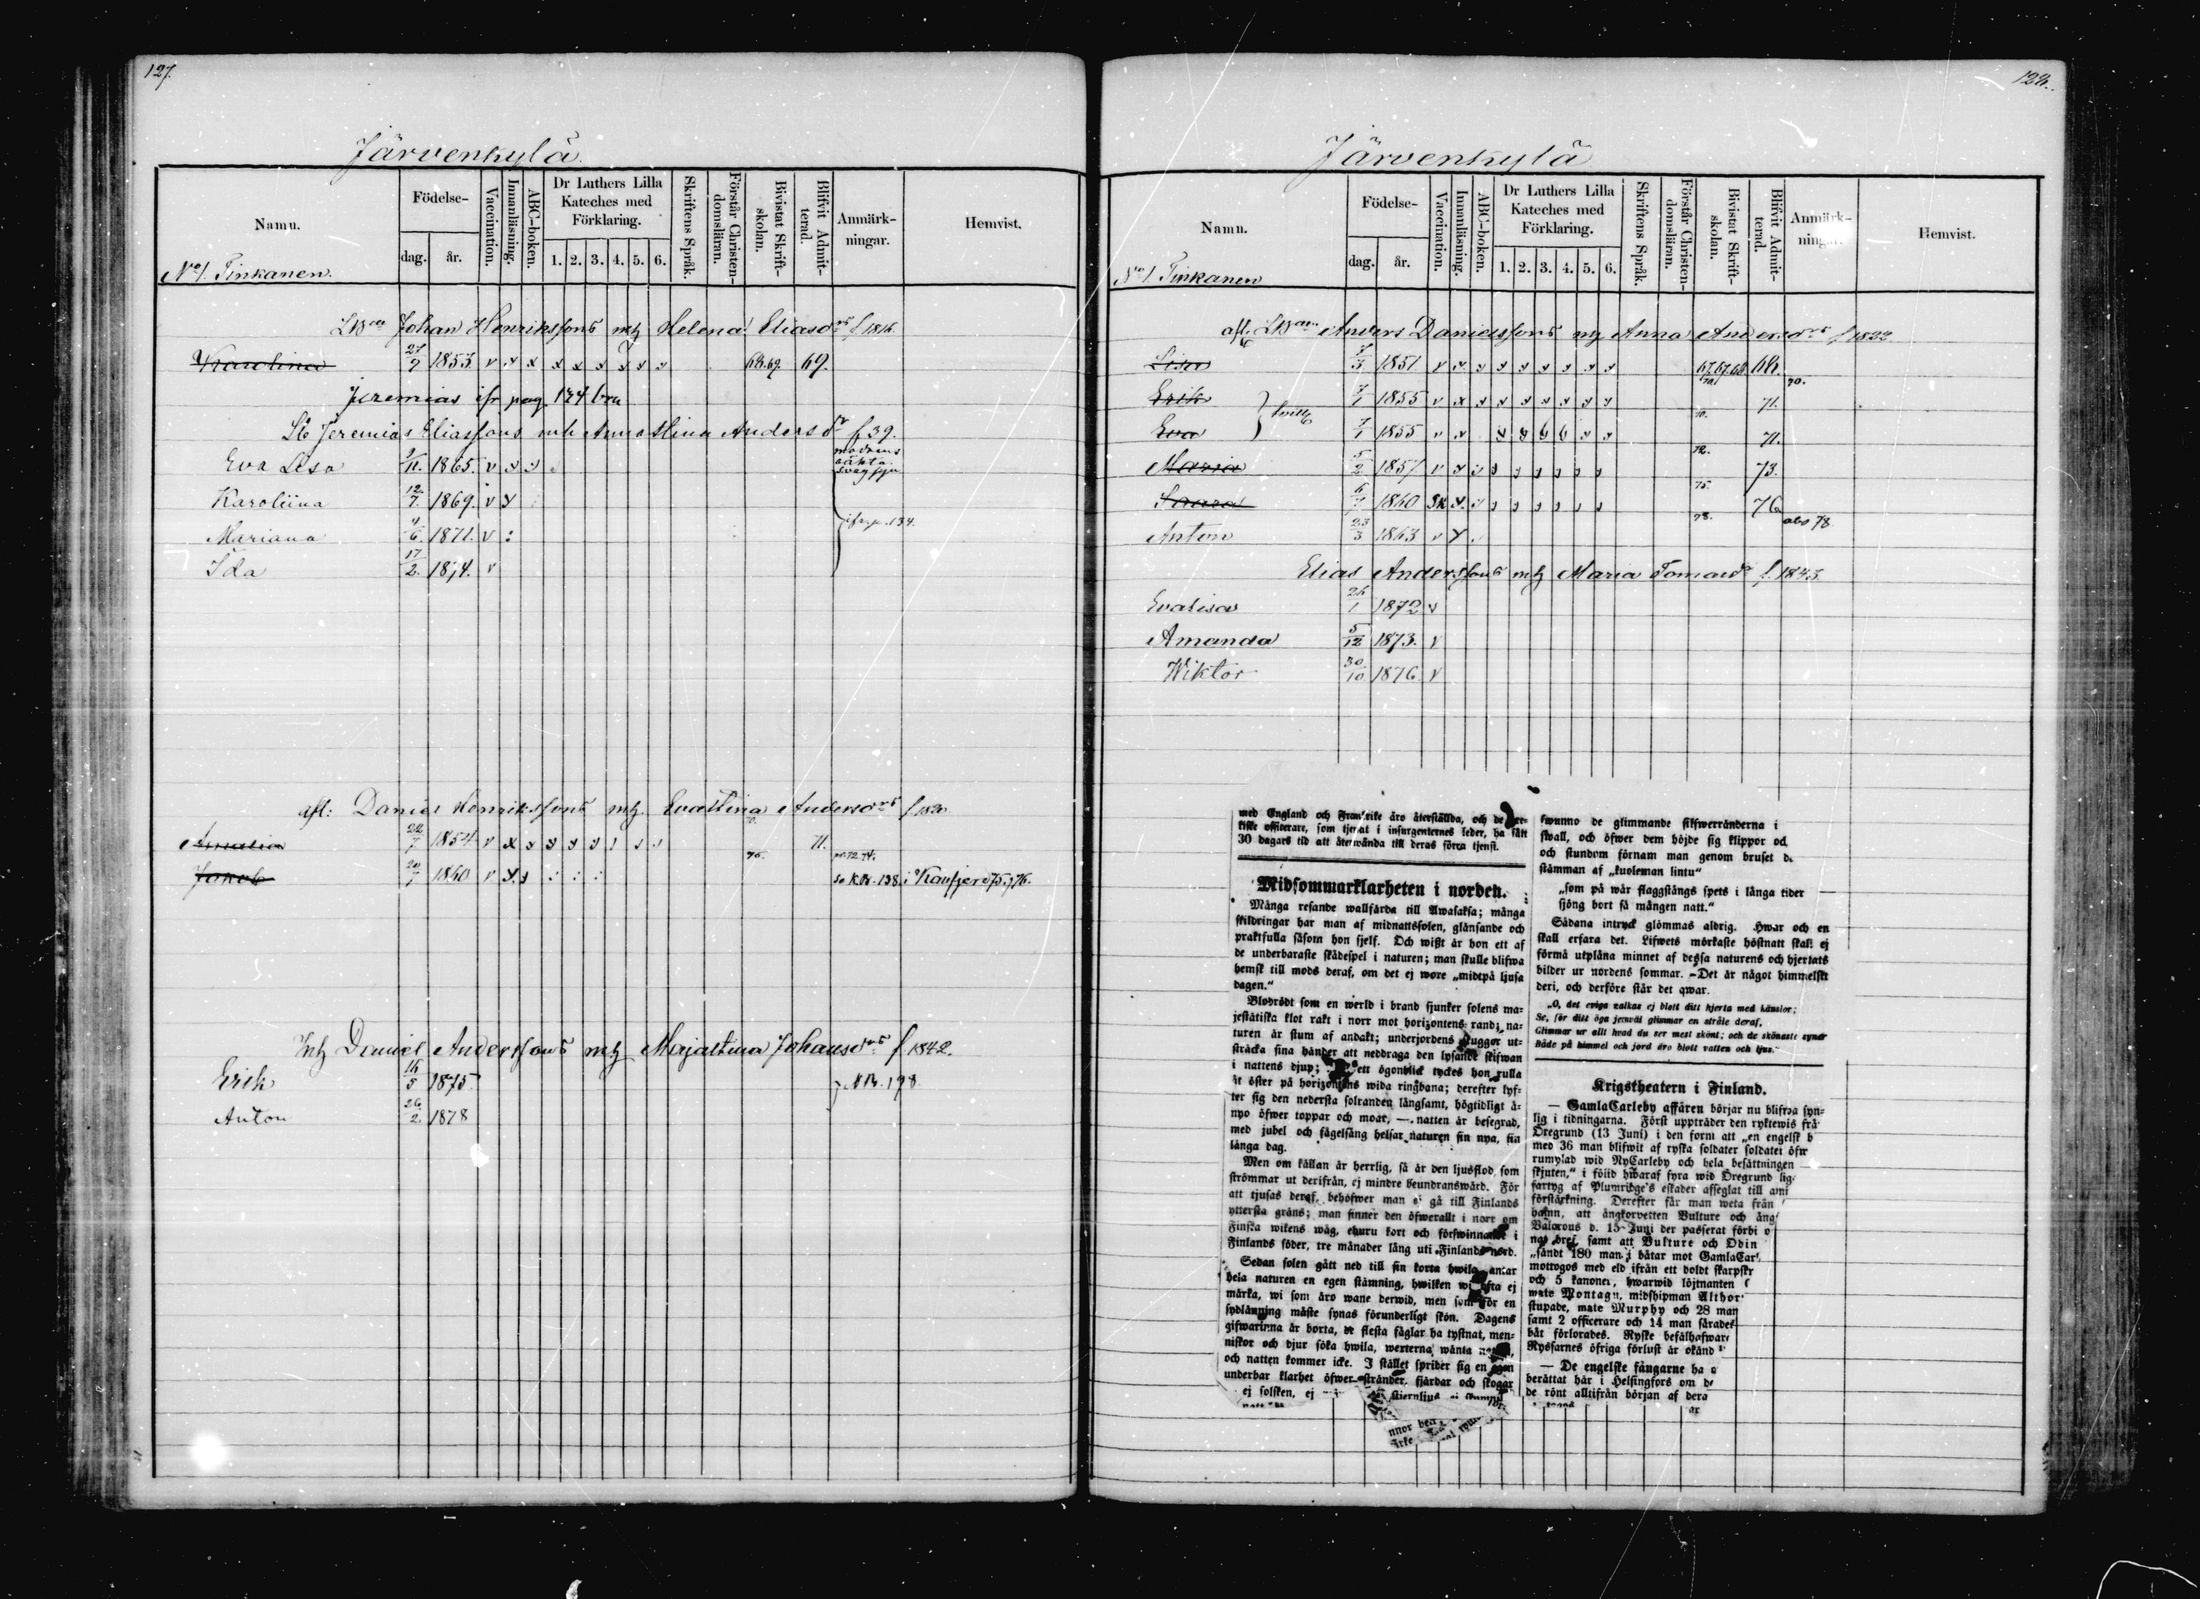 127.
Järvenkylä.
Namn.
Födelse-
dag.
år.
Vaccination.
Innanläsning.
ABC-boken.
Dr Luthers Lilla
Kateches med
Förklaring.
1. 2. 3. 4. 5. 6.
Skriftens Språk.
Förstår Christen-
domsläran.
Bivistat Skrift-
skolan.
Blifvit Admit-
terad.
Anmärk-
ningar.
Hemvist.
No 1. Tinkanen.
Johan Henrikssons Helena Eliasdrs f 1816.
Karolina 27/9 1853. v x x x x x x x x 68.69. 69.
Jeremias pag. 134
Jeremias Eliassons Anna Stina Andersdr f 39.
Eva Lisa 9/11. 1865. v
Karoliina 12/7. 1869. v
Mariana 4/6. 1871. v
Ida 17/2. 1874. v
134.
afl: Daniel Henrikssons Evastina Andersdrs f 1820
Amalia 22/7 1854 v 71.
Jakob 1860 v 138.
Daniel Anderssons Majastina Johansdrs f 1842.
Erik 16/5 1875
Anton 26/2. 1878
128.
Järvenkylä
Namn.
Födelse-
dag.
år.
Vaccination.
Innanläsning.
ABC-boken.
Dr Luthers Lilla
Kateches med
Förklaring.
1. 2. 3. 4. 5. 6.
Skriftens Språk.
Förstår Christen-
domsläran.
Bivistat Skrift-
skolan.
Blifvit Admit-
terad.
Anmärk-
ningar.
Hemvist.
No 1. Tinkanen
afl. Anders Danielssons Anna Andersdrs f 1822
Lisa 1851 v 68.
Erik 7/1 1855 v 70. 71.
Eva 7/1 1855 v 71.
Maria 5/2 1857 v 72. 73.
Saara 6/7 1860 75. 76
Anton 23/3 1863 v 78. abs 78
Elias Anderssons Maria Tomasdr f. 1843.
Evalisa 26/1 1872 v
Amanda 5/12 1873. v
Wiktor 30/10 1876 v
med England och Frankrike äro återställda, och de
kiske officerare, som tjenat i insurgenternes leder, ha fått
30 dagars tid att återwända till deras förra tjenst.
Midsommarklarheten i norden.
Många resande wallfärda till Awasaksa; många
skildringar har man af midnattssolen, glänsande och
praktfulla såsom hon sjelf. Och wißt är hon ett af
de underbaraste skådespel i naturen; man skulle blifwa
hemsk till mods deraf, om det ej wore „midtpå ljusa
dagen.“
Blodrödt som en werld i brand sjunker solens ma-
jestätiska klot rakt i norr mot horizontens rand; na-
turen är stum af andakt; underjordens skuggor ut-
sträcka sina händer att neddraga den lysande skifwan
i nattens djup; ett ögonblick tyckes hon rulla
åt öster på horizontens wida ringbana; derefter lyf-
ter sig den nedersta solranden långsamt, högtidligt å-
nyo öfwer toppar och moar, — natten är besegrad,
med jubel och fågelsång helsar naturen sin nya, sin
långa dag.
Men om källan är herrlig, så är den ljusflod som
strömmar ut derifrån, ej mindre beundranswärd. För
att tjusas deraf, behöfwer man ej gå till Finlands
yttersta gräns; man finner den öfwerallt i norr om
Finska wikens wåg, ehuru kort och förswinnande i
Finlands söder, tre månader lång uti Finlands nord.
Sedan solen gått ned till sin korta hwila, antar
hela naturen en egen stämning, hwilken wi ofta ej
märka, wi som äro wane derwid, men som för en
sydlänning måste synas förunderligt skön. Dagens
gifwarinna är borta, de flesta fåglar ha tystnat, men-
niskor och djur söka hwila, wexterna wänta
och natten kommer icke. I stället sprider sig en egen
underbar klarhet öfwer stränder, fjärdar och skogar
ej solsken, ej
swunno de glimmande silfwerränderna i
swall, och öfwer dem höjde sig klippor oc
och stundom förnam man genom bruset
stämman af „kuoleman lintu“
„som på wår flaggstångs spets i långa tider
sjöng bort så mången natt.“
Sådana intryck glömmas aldrig. Hwar och en
skall erfara det. Lifwets mörkaste höstnatt skall ej
förmå utplåna minnet af dessa naturens och hjertats
bilder ur nordens sommar. — Det är något himmelskt
deri, och derföre står det qwar.
„O, det eviga valkas ej blott ditt hjerta med känslor;
Se, för ditt öga jemväl glimmar en stråle deraf,
Glimmar ur allt hvad du ser mest skönt; och de skönaste syner
Både på himmel och jord äro blott vatten och ljus.“
Krigstheatern i Finland.
— GamlaCarleby affären börjar nu blifwa syn-
lig i tidningarna. Först uppträder den ryktewis frå
Öregrund (13 Juni) i den form att „en engelsk b
med 36 man blifwit af ryska soldater soldater öfw
rumplad wid NyCarleby och hela besättningen
skjuten,“ i följd hwaraf fyra wid Öregrund lig
fartyg af Plumridge's eskader afseglat till
förstärkning. Derefter får man weta från
hamn, att ångkorvetten Vulture och ång
Valorous d. 15 Juni der passerat förbi
samt att Vulture och Odin
„sändt 180 man i båtar mot GamlaCar
mottogos med eld ifrån ett doldt skarpskr
och 5 kanoner, hwarwid löjtnanten
mate Montagu, midshipman Althor
stupade, mate Murphy och 28 man
samt 2 officerare och 14 man sårades
båt förlorades. Ryske befälhafware
Ryssarnes öfriga förlust är okänd
— De engelske fångarne ha
berättat här i Helsingfors om de
de rönt alltifrån början af dera